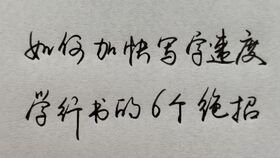 如何加快写字速度
学行书的6个绝招